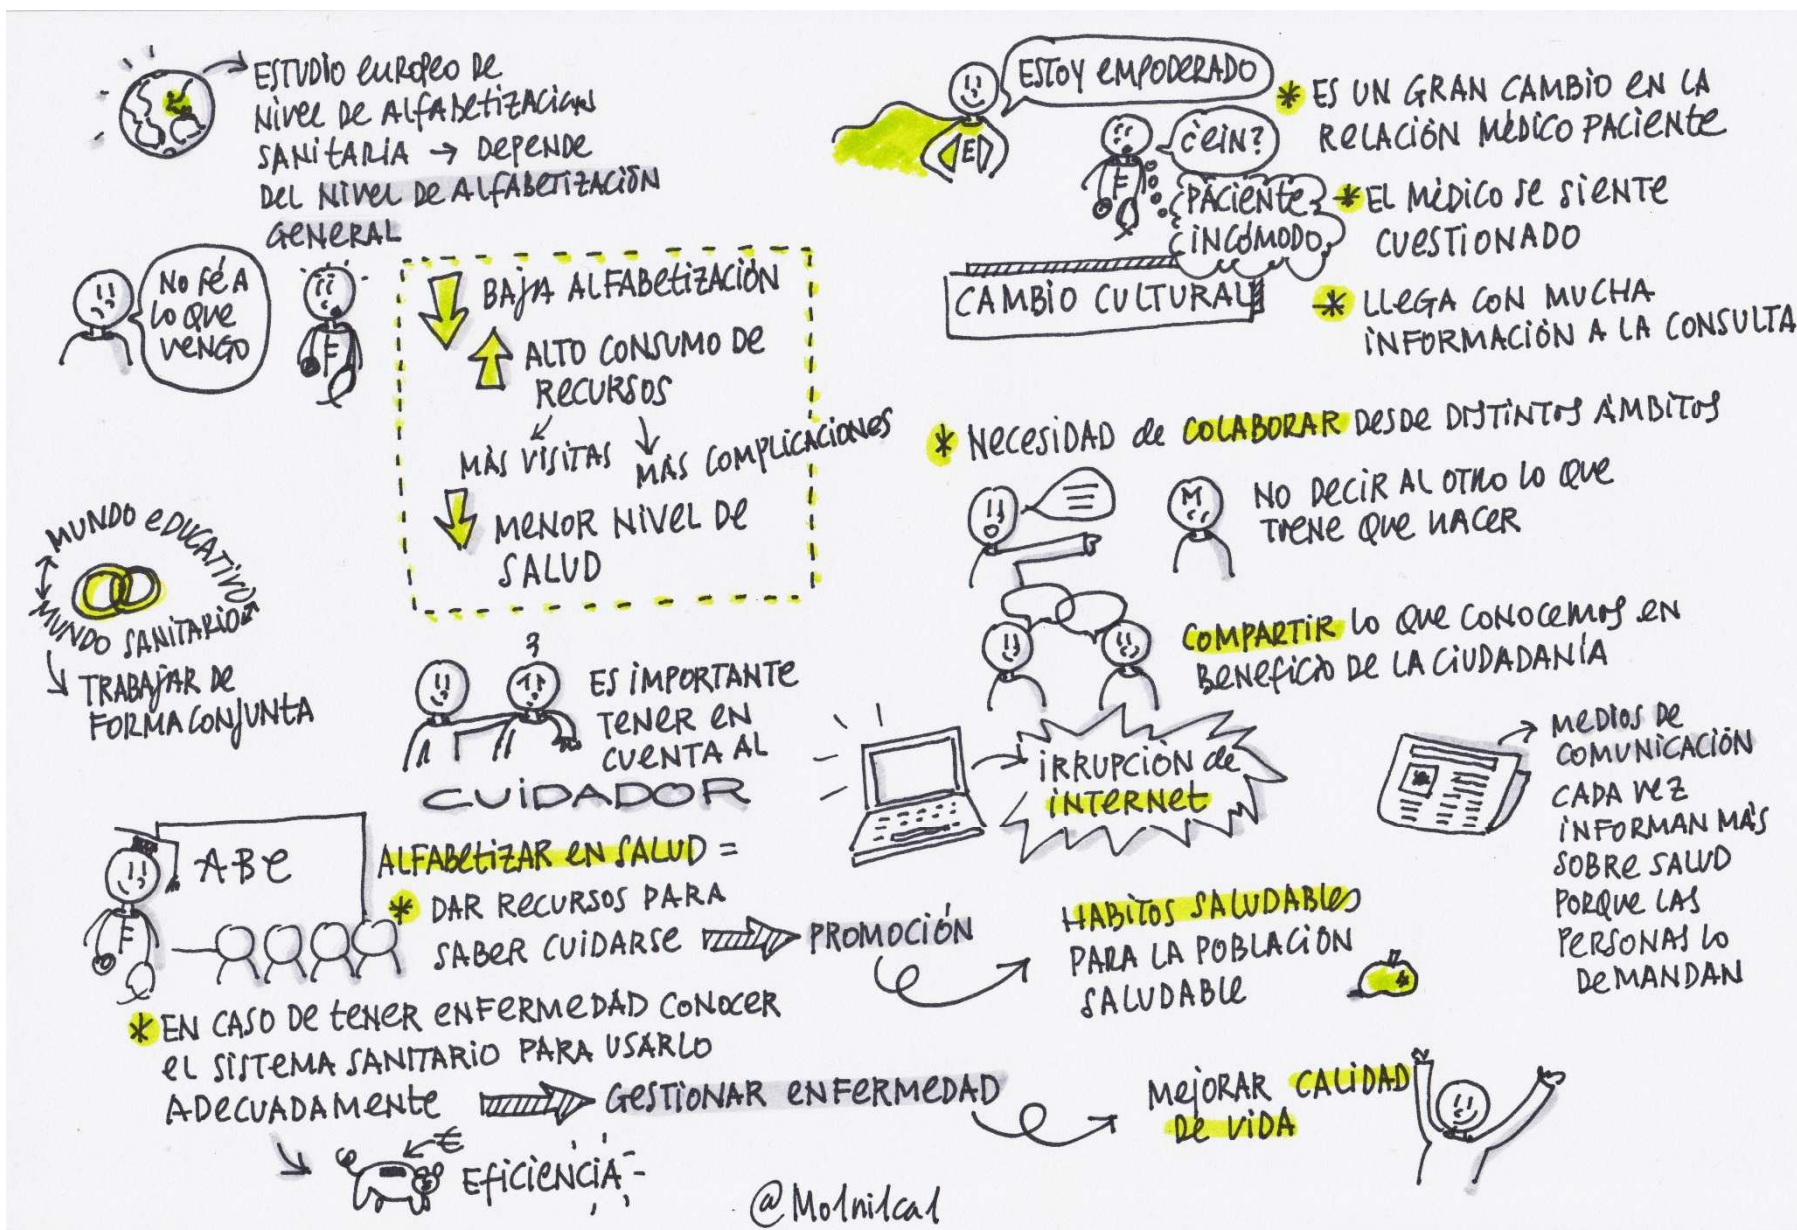 ESTUDIO EUROPEO DE
NIVEL DE ALFABETIZACION
SANITARIA → DEPENDE
DEL NIVEL DE ALFABETIZACIÓN
GENERAL
NO SÉ A
LO QUE
VENGO
BAJA ALFABETIZACIÓN
ALTO CONSUMO DE
RECURSOS
MÁS VISITAS
MÁS COMPLICACIONES
MENOR NIVEL DE
SALUD
MUNDO EDUCATIVO
MUNDO SANITARIO
TRABAJAR DE
FORMA CONJUNTA
ES IMPORTANTE
TENER EN
CUENTA AL
CUIDADOR
ABC
ALFABETIZAR EN SALUD =
* DAR RECURSOS PARA
SABER CUIDARSE
PROMOCIÓN
HABITOS SALUDABLES
PARA LA POBLACIÓN
SALUDABLE
* EN CASO DE TENER ENFERMEDAD CONOCER
EL SISTEMA SANITARIO PARA USARLO
ADECUADAMENTE
GESTIONAR ENFERMEDAD
MEJORAR CALIDAD
DE VIDA
€
EFICIENCIA
ESTOY EMPODERADO
E
¿EIN?
PACIENTE
INCÓMODO
CAMBIO CULTURAL
* ES UN GRAN CAMBIO EN LA
RELACIÓN MÉDICO PACIENTE
* EL MÉDICO SE SIENTE
CUESTIONADO
* LLEGA CON MUCHA
INFORMACIÓN A LA CONSULTA
* NECESIDAD de COLABORAR DESDE DISTINTOS ÁMBITOS
NO DECIR AL OTRO LO QUE
TIENE QUE HACER
COMPARTIR LO QUE CONOCEMOS EN
BENEFICIO DE LA CIUDADANÍA
IRRUPCIÓN de
INTERNET
MEDIOS DE
COMUNICACIÓN
CADA VEZ
INFORMAN MÁS
SOBRE SALUD
PORQUE LAS
PERSONAS LO
DEMANDAN
@Mo1ni1ca1